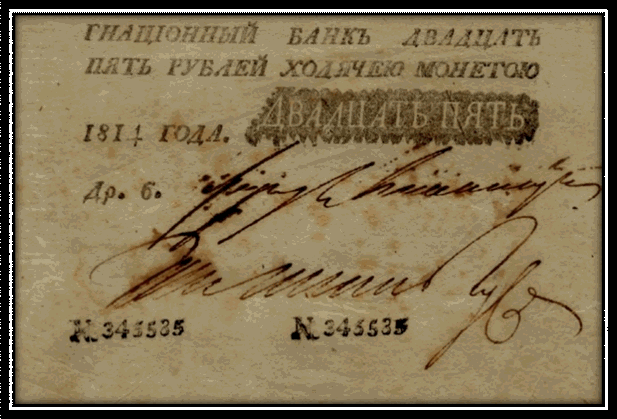 ГНАЦІОННЫЙ БАНКЪ ДВАДЦАТЬ
ПЯТЬ РУБЛЕЙ ХОДЯЧЕЮ МОНЕТОЮ
ДВАДЦАТЬ ПЯТЬ
1814 ГОДА.
Др. 6.
№ 345535 № 345535